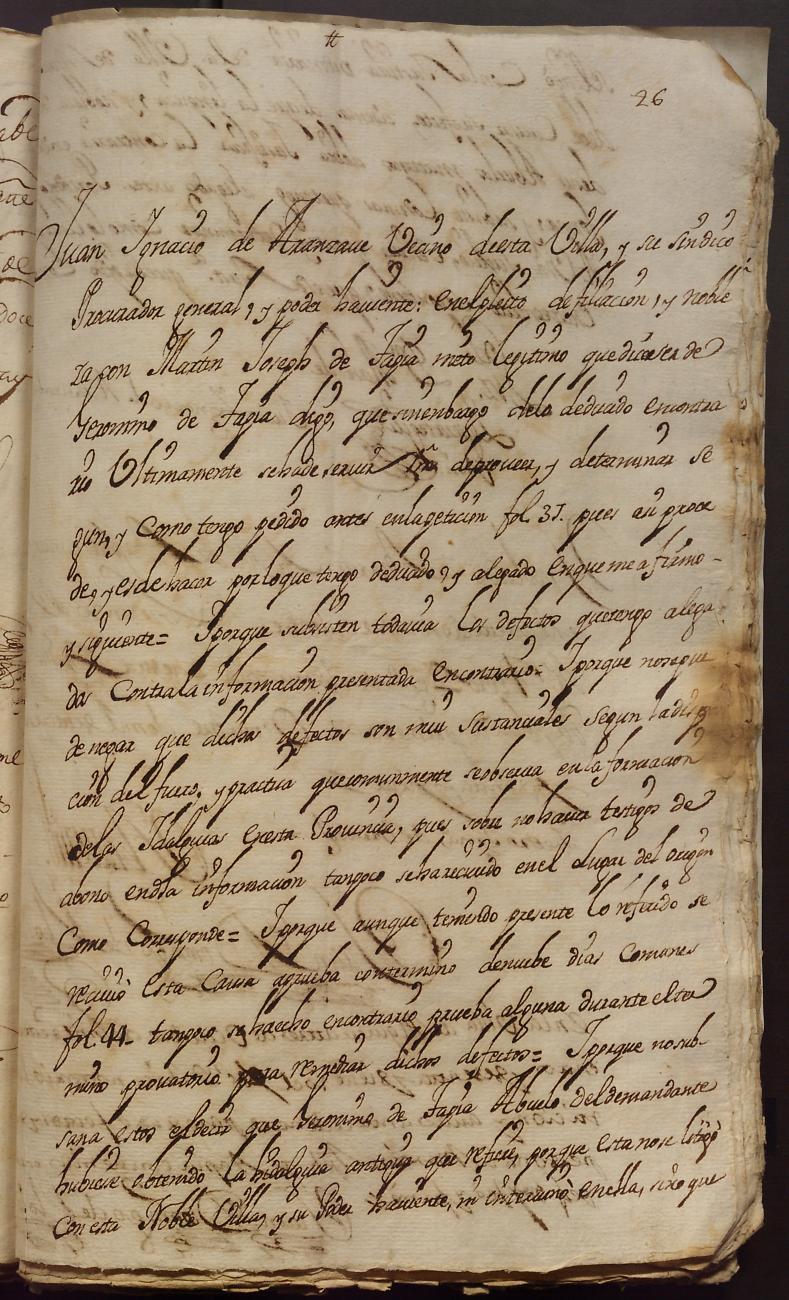 tt
26
Juan Ignacio de Aranzave Vecino de esta Villa, y su sindico
Procurador general, y poder haviente: en el pleito de filiacion, y noble
za con Martin Joseph de Tapia nieto legitimo que dice ser de
Geronimo de Tapia digo, que sinenbargo delo deducido encontra
rio Ultimamente sehade servir Vm de proveer, y determinar se
gun, y Como tengo pedido antes enlapeticion fol. 31. pues asi proce
de, y es de hacer porloque tengo deducido, y alegado enqueme afirmo-
y siguiente= Iporque subsisten todavia los defectos quetengo alega
dos Contrala informacion presentada encontrario= Iporque nosepue
denegar que dichos defectos son mui sustanciales segun ladispo
cion del fuero, y practica quecomunmente seobserva enla formacion
delas Idalguias enesta Provincia, pues sobre no haver testigos de
abono endha informacion tanpoco seharecivido en el Lugar del origen
Como Corresponde= Iporque aunque teniendo presente lo referido se
recivio esta Causa aprueba contermino denuebe dias Comunes
fol. 44- tanpoco sehaecho encontrario prueba alguna durante el ter
mino provatorio para remediar dichos defectos= Iporque nosub-
sana estos eldecir que Geronimo de Tapia Abuelo deldemandante
hubiese obtenido la hidalguia antigua que refiere, porque esta nose litigò
Con esta Noble Villa, y su Poder haviente, ni intervino enella, sino que